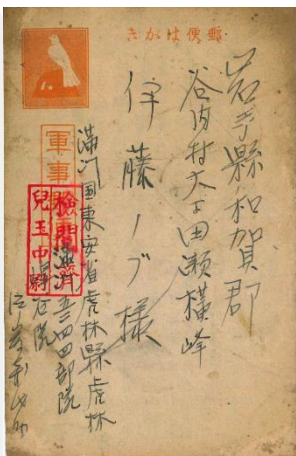 郵便はがき
岩手縣和賀郡
谷内村大字田瀬横峰
伊藤ノブ様
軍事
檢閲濟
兒玉中
満洲国東安省虎林縣虎林
四四部隊